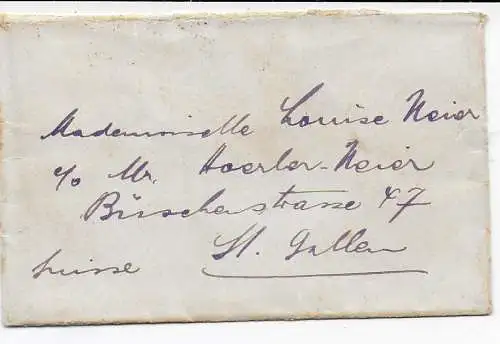 Mademoiselle Louise Meier
c/o Mr. Hoerler-Meier
Büschenstrasse 47
St. Gallen
Suisse